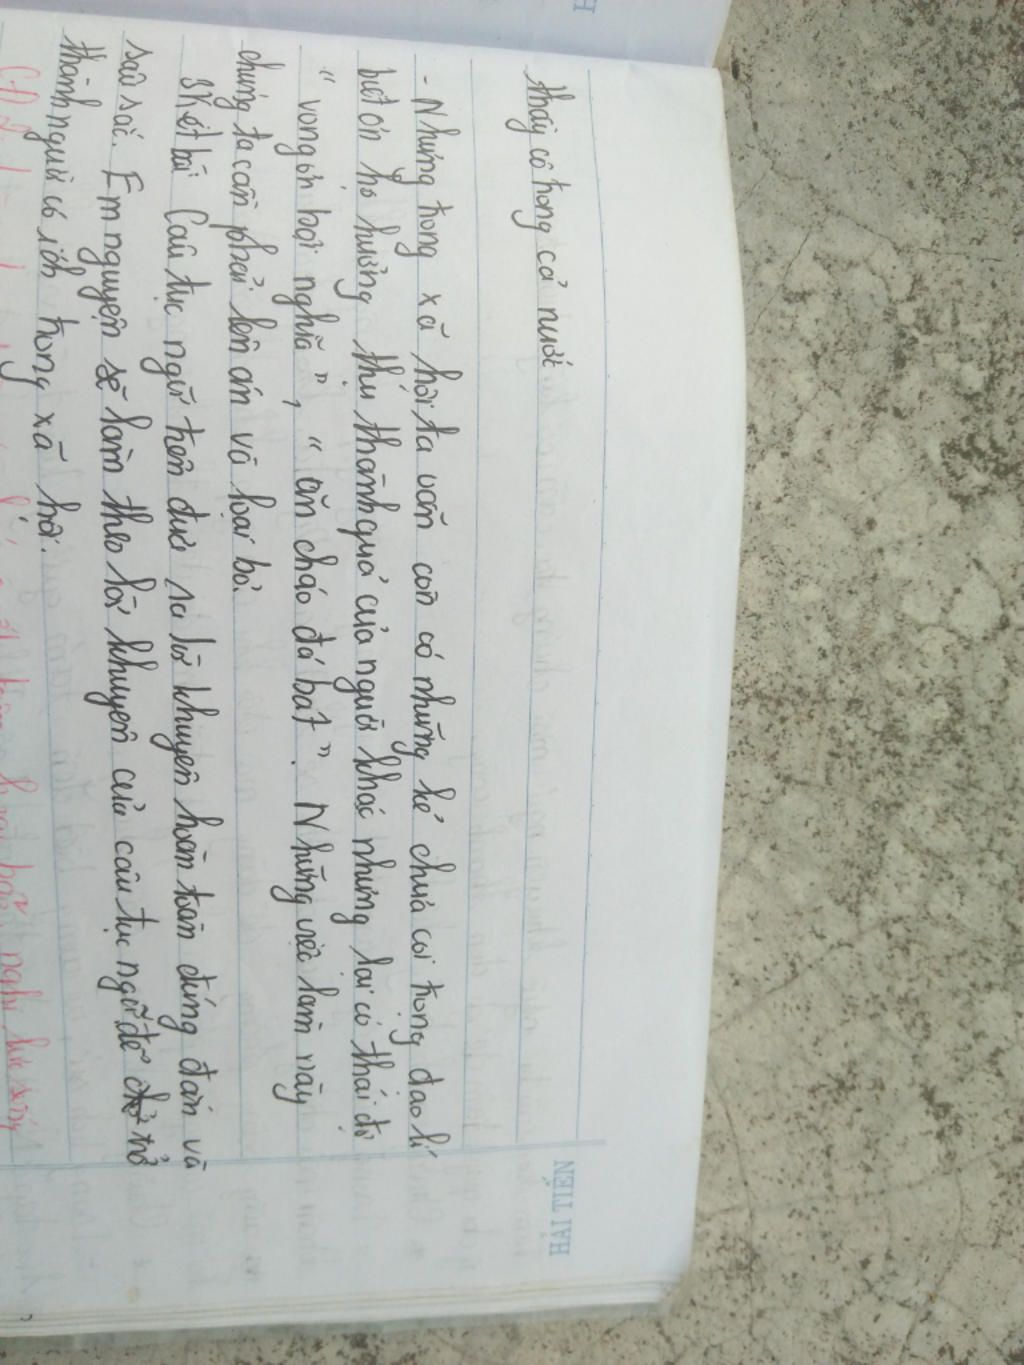 thầy cô trong cả nước
- Nhưng trong xã hội ta vẫn còn có những kẻ chưa coi trọng đạo lí
biết ơn họ hưởng thụ thành quả của người khác nhưng lại có thái độ
“ vong ơn bội nghĩa ”, “ ăn cháo đá bát ”. Những việc làm này
chúng ta cần phải lên án và loại bỏ.
3 Kết bài Câu tục ngữ trên đưa ra lời khuyên hoàn toàn đúng đắn và
sâu sắc. Em nguyện sẽ làm theo lời khuyên của câu tục ngữ để trở
thành người có ích trong xã hội.
HẢI TIẾN